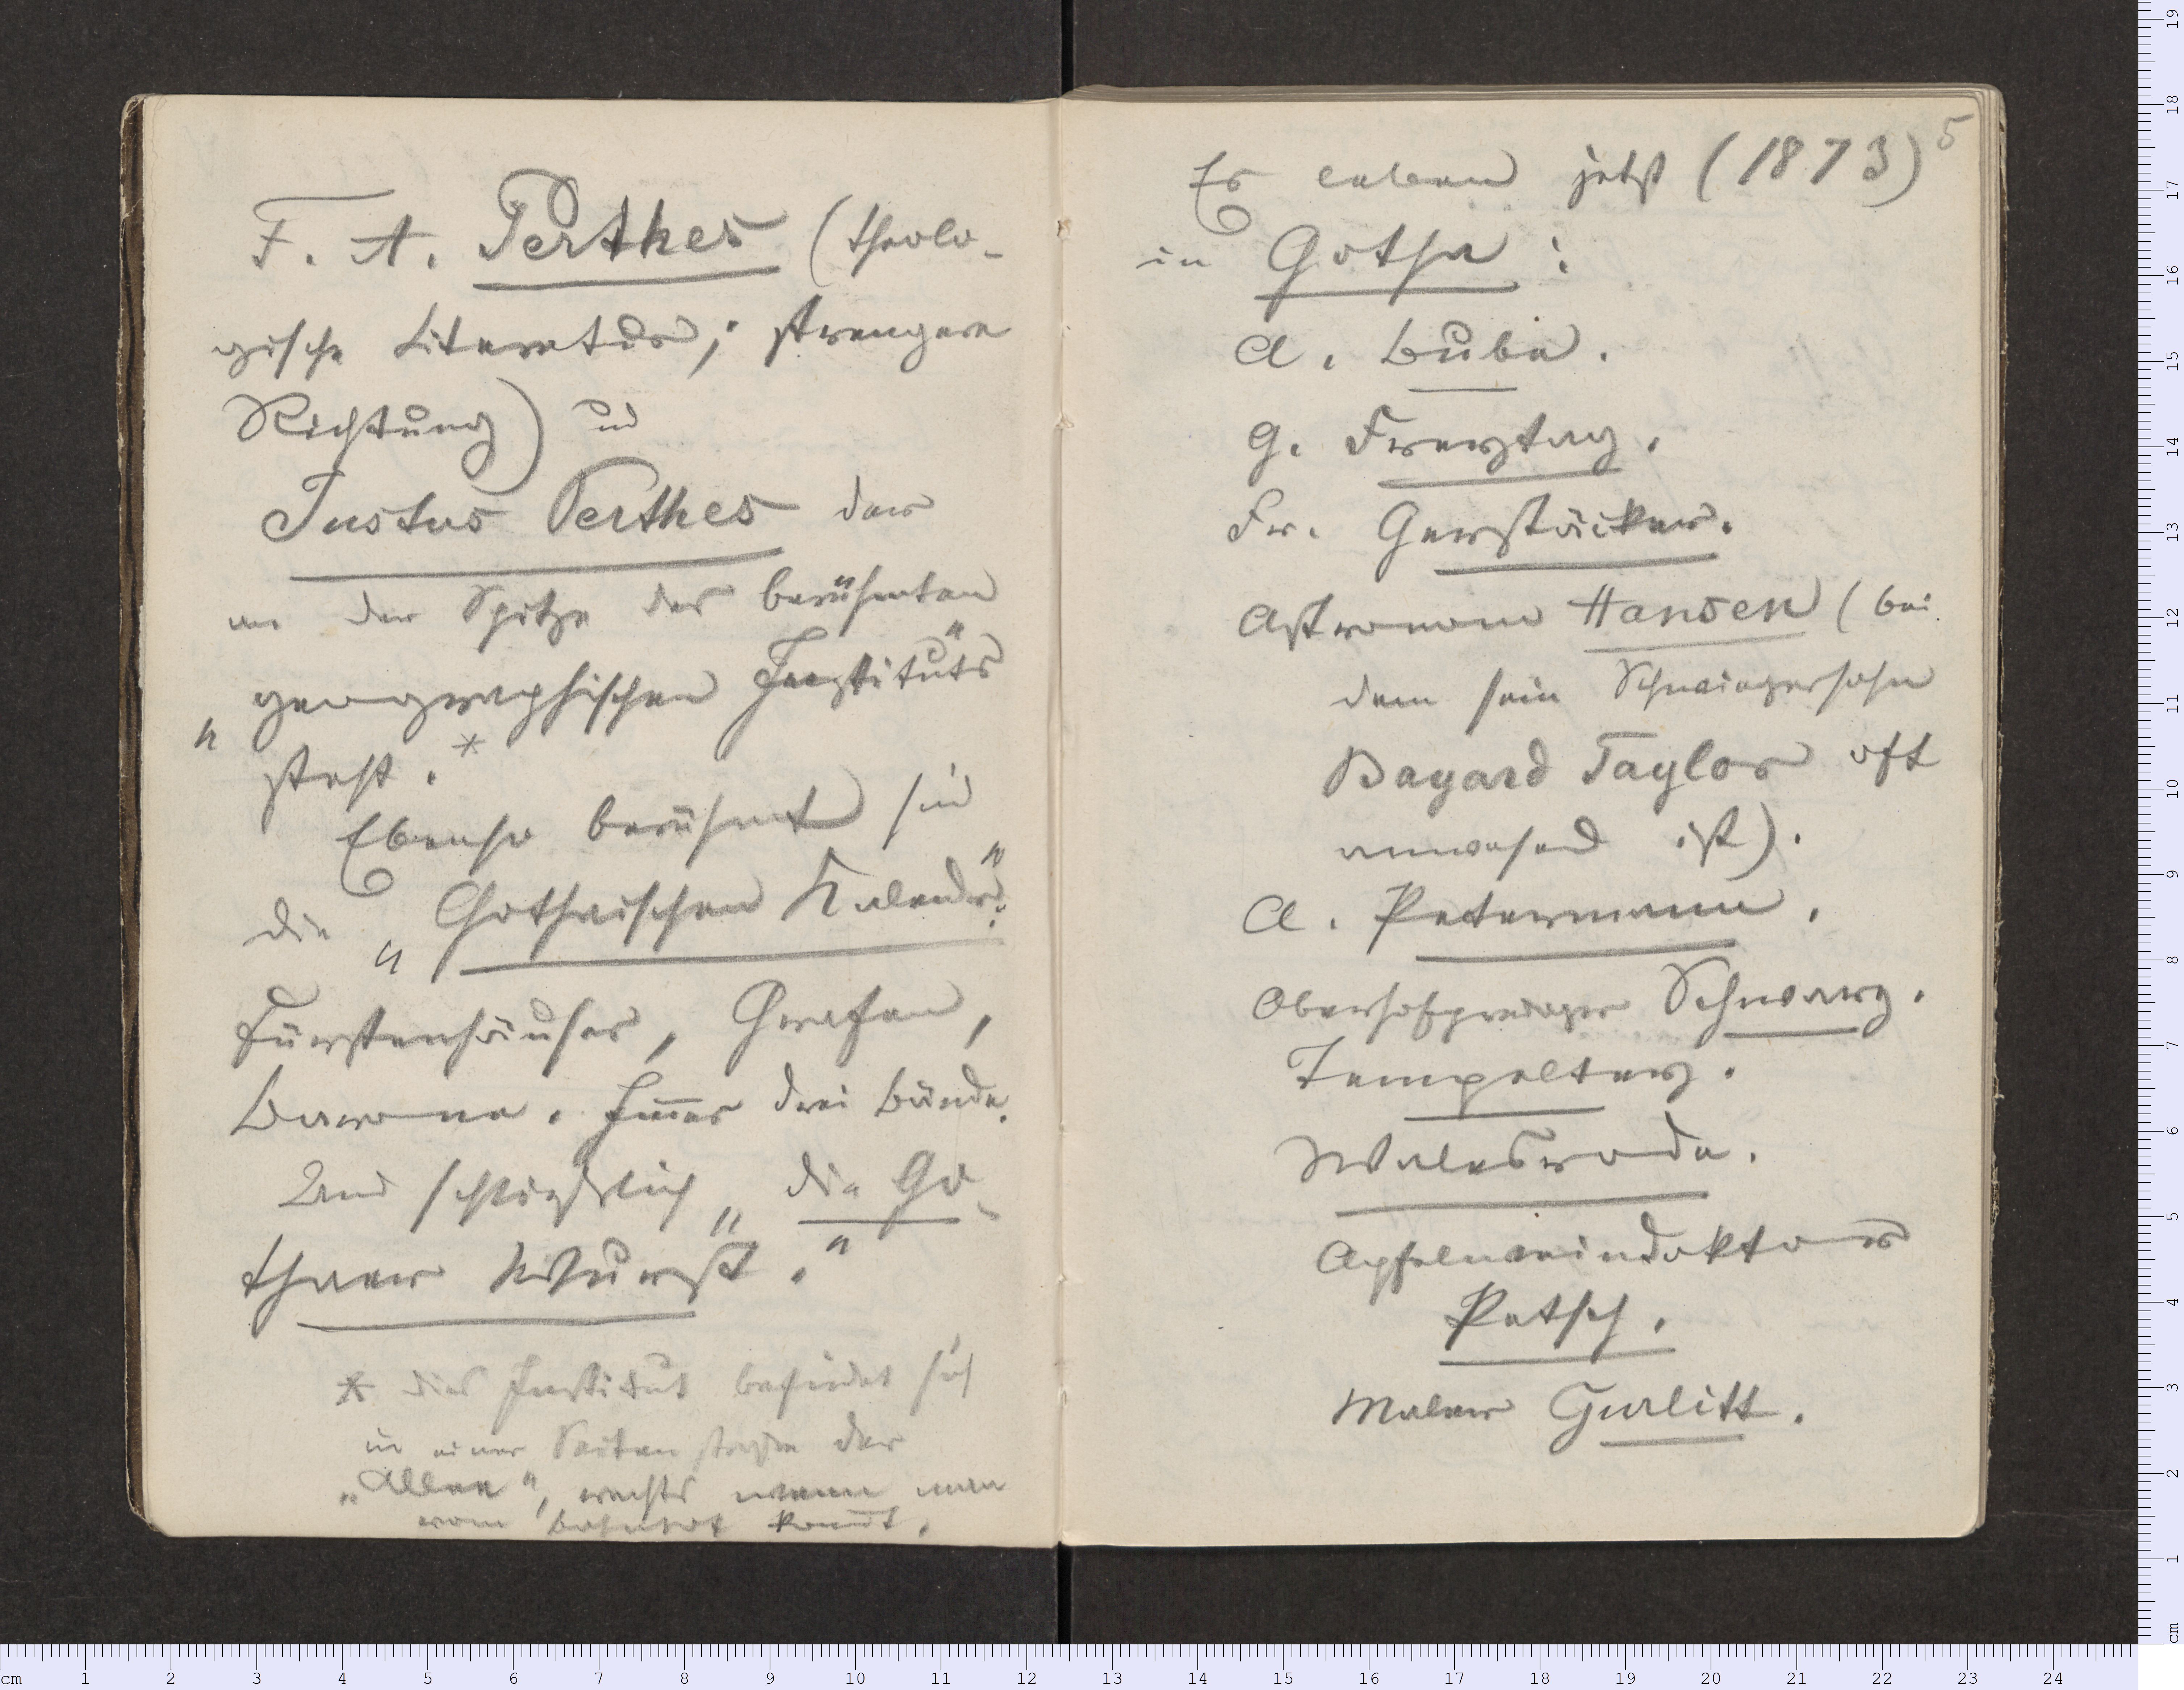 F. A. Perthes (theolo-
gische Literatur; strengere
Richtung) und
Justus Perthes der
an der Spitze des berühmten
„geographischen Instituts“
steht.*
Ebenso berühmt sind
die „Gothaischen Kalender“:
Fürstenhäuser, Grafen,
Barone. Immer drei Bände.
Und schließlich „die Go-
thaer Wurst.“
* Dies Institut befindet sich
in einer Seitenstraße der
„Allee“, rechts wenn man
vom Bahnhof kommt.
5
Es leben jetzt (1873)
in Gotha:
A. Bube.
G. Freytag.
Fr. Gerstäcker.
Astronom Hansen (bei
dem sein Schwiegersohn
Bayard Taylor oft
anwesend ist).
A. Petermann.
Oberhofprediger Schwarz.
Tempeltey.
Walesrode.
Apfelweindoktor
Petsch.
Maler Gurlitt.
cm 1 2 3 4 5 6 7 8 9 10 11 12 13 14 15 16 17 18 19 20 21 22 23 24
19
18
17
16
15
14
13
12
11
10
9
8
7
6
5
4
3
2
1
cm